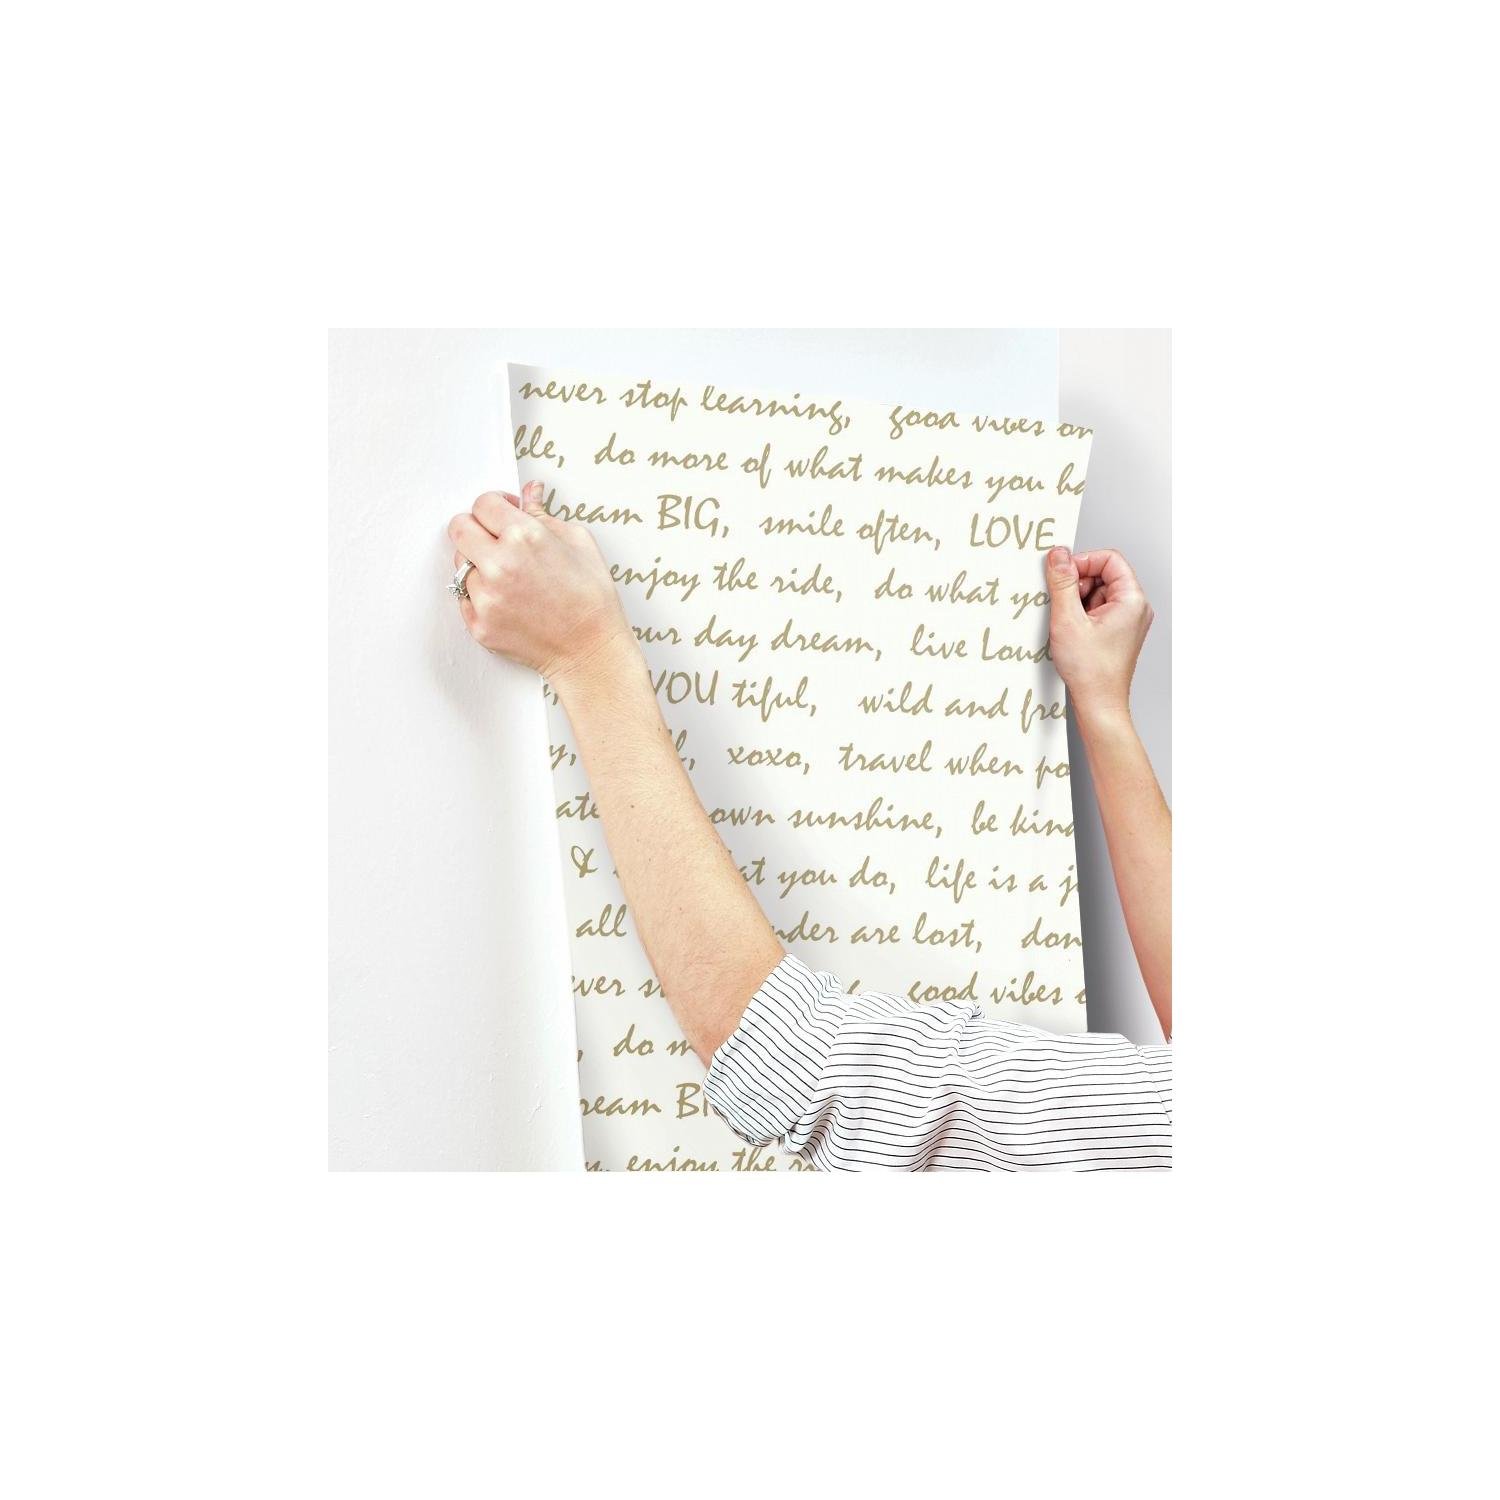 never stop learning, good vibes on
ble, do more of what makes you ha
dream BIG, smile often, LOVE
enjoy the ride, do what yo
our day dream, live Loud
YOU tiful, wild and free
y, xoxo, travel when po
ate own sunshine, be kind
& at you do, life is a j
all nder are lost, don
ever st good vibes o
, do m
ream BIG
enjoy the ri